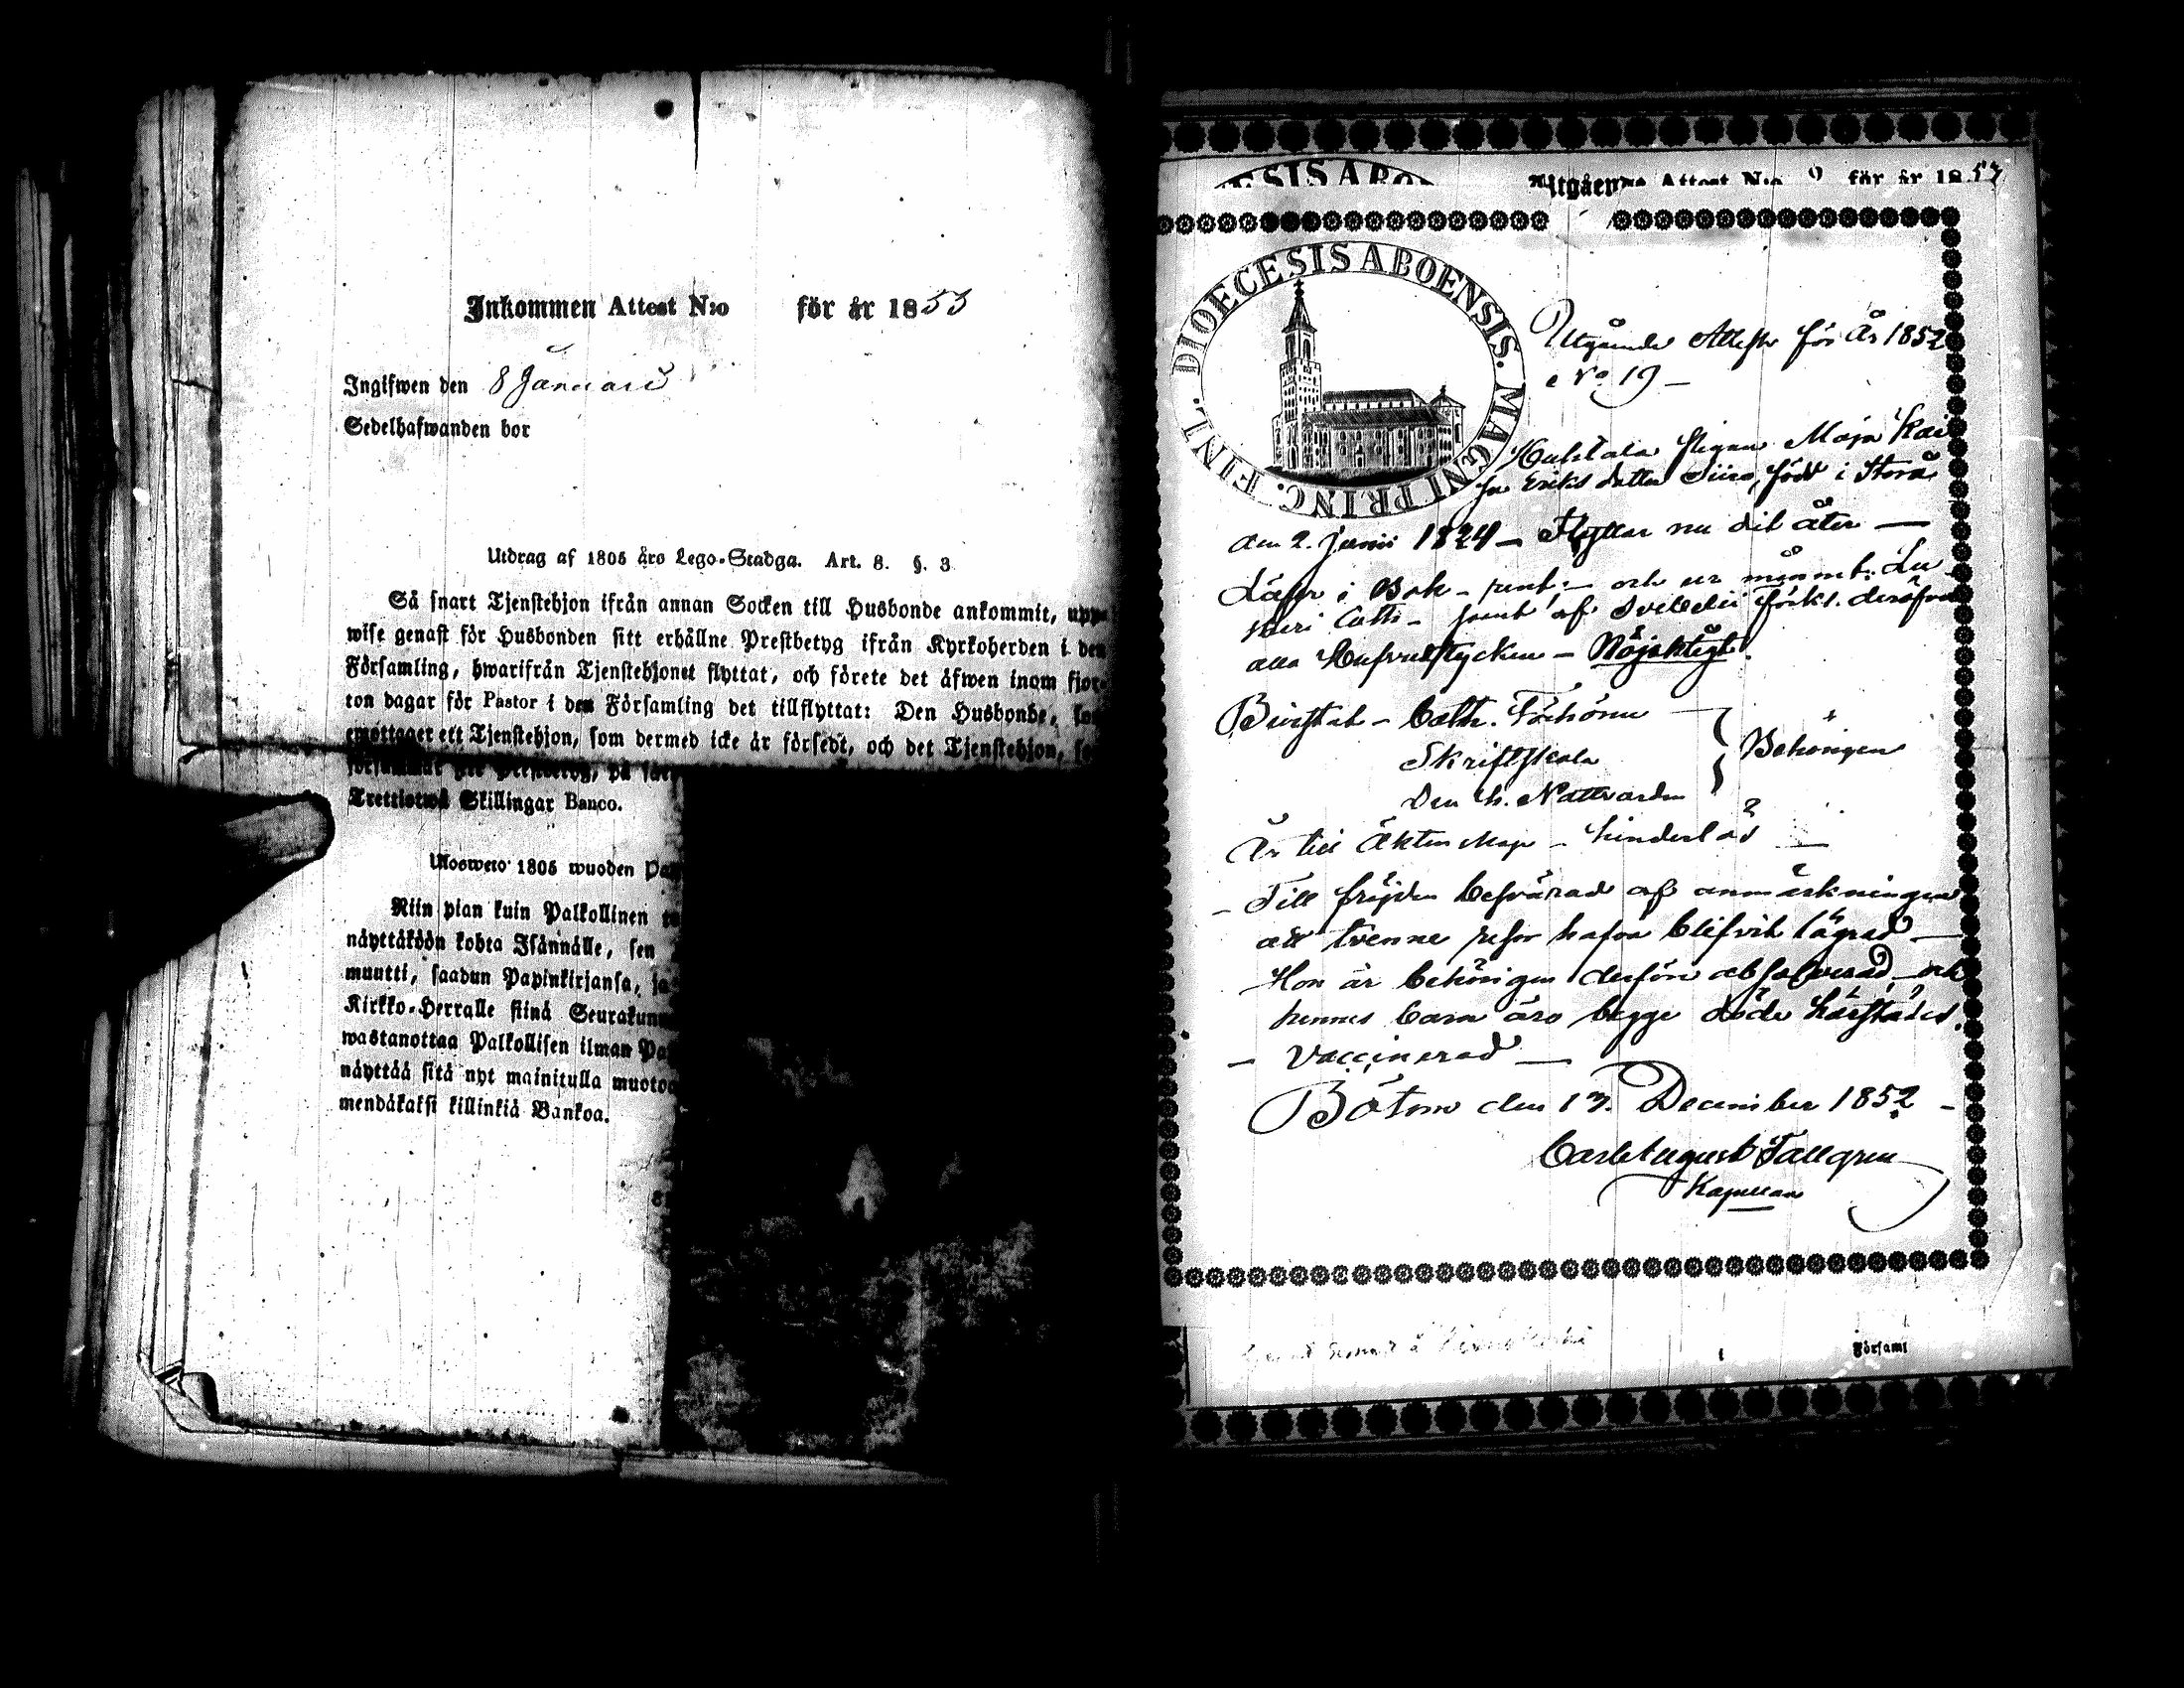 Inkommen Attest N:o för år 1853
Ingifwen den 8 Januari
Sedelhafwanden bor
Utdrag af 1805 års Lego-Stadga. Art. 8. §. 3
Så snart Tjenstehjon ifrån annan Socken till Husbonde ankommit, upp-
wise genast för Husbonden sitt erhållne Prestbetyg ifrån Kyrkoherden i den
Församling, hwarifrån Tjenstehjonet flyttat, och förete det äfwen inom fjor-
ton dagar för Pastor i den Församling det tillflyttat: Den Husbonde, som
emottager ett Tjenstehjon, som dermed icke är försedt, och det Tjenstehjon,
Trettiotwå Skillingar Banco.
Ulosweto 1805 wuoden
Niin pian kuin Palkollinen
näyttäköön kohta Isännälle, sen
muutti, saadun Papinkirjansa,
Kirkko-Herralle siinä
wastanottaa Palkollisen ilman
näyttää sitä nyt mainitulla
mendäkaksi killinkiä Bankoa.
Utgående Attest N:o 9 för år 1853
DIOECESIS ABOENSIS. MAGNI PRINC. FINL.
Utgående Attester för År 1852
No 19 —
Pigan Maja Kai
sa Eriks dotter Siiro, född i Storå
den 2. Junii 1824 — Flyttar nu dit åter —
Läser i Bok — rent: — och ur minnet: Lu
theri Cath — samt af Svebelii förkl. deröfver
alla Hufvudstycken — Nöjaktigt.
Bivistat — Cath. Förhören
Skriftskola
Den h. Nattvarden
} Behörigen
Är till Äktenskap — hinderlös —
— Till frejden besvärad af anmärkningen
att tvenne resor hafva blifvit lägrad —
Hon är behörigen derföre absolverad, och
hennes barn äro begge döde härstädes.
— Vaccinerad —
Bötom den 13. December 1852 —
Carl August Tallgren
Kapellan
Församl